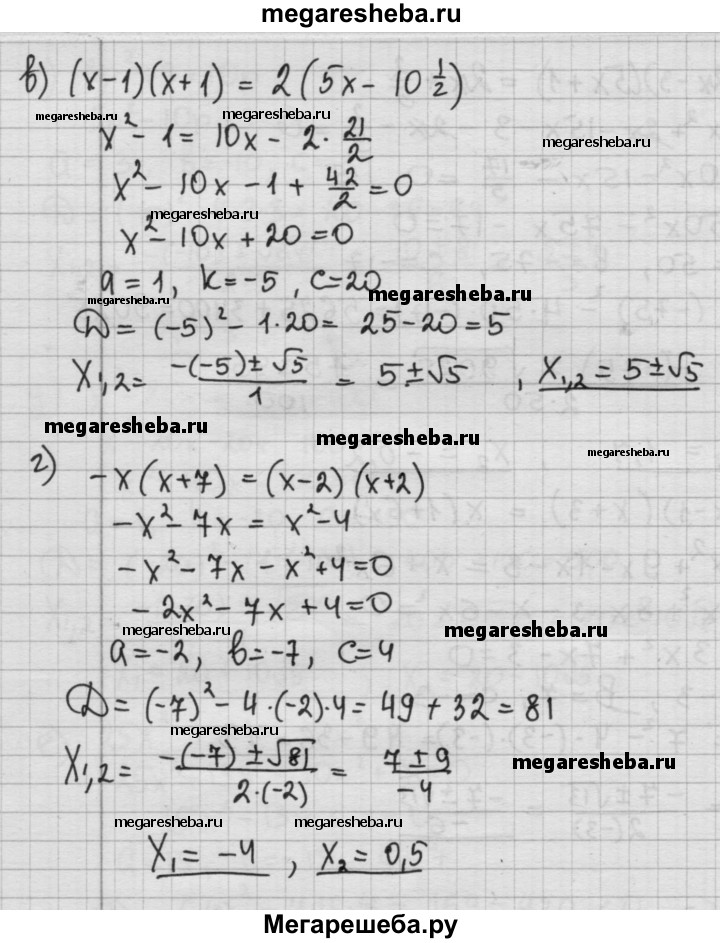 megaresheba.ru
в) (x-1)(x+1) = 2(5x - 10 1/2)
megaresheba.ru megaresheba.ru
x² - 1 = 10x - 2 · 21/2 megaresheba.ru
x² - 10x - 1 + 42/2 = 0
megaresheba.ru
x² - 10x + 20 = 0
a = 1, k = -5, c = 20
megaresheba.ru megaresheba.ru
D = (-5)² - 1·20 = 25 - 20 = 5
x₁,₂ = (-(-5) ± √5)/1 = 5 ± √5, x₁,₂ = 5 ± √5
megaresheba.ru megaresheba.ru megaresheba.ru
г) -x(x+7) = (x-2)(x+2)
-x² - 7x = x² - 4
-x² - 7x - x² + 4 = 0
-2x² - 7x + 4 = 0
megaresheba.ru megaresheba.ru
a = -2, в = -7, c = 4
D = (-7)² - 4·(-2)·4 = 49 + 32 = 81
megaresheba.ru
x₁,₂ = (-(-7) ± √81)/(2·(-2)) = (7 ± 9)/-4 megaresheba.ru
megaresheba.ru megaresheba.ru
x₁ = -4, x₂ = 0,5
megaresheba.ru
Мегарешеба.ру